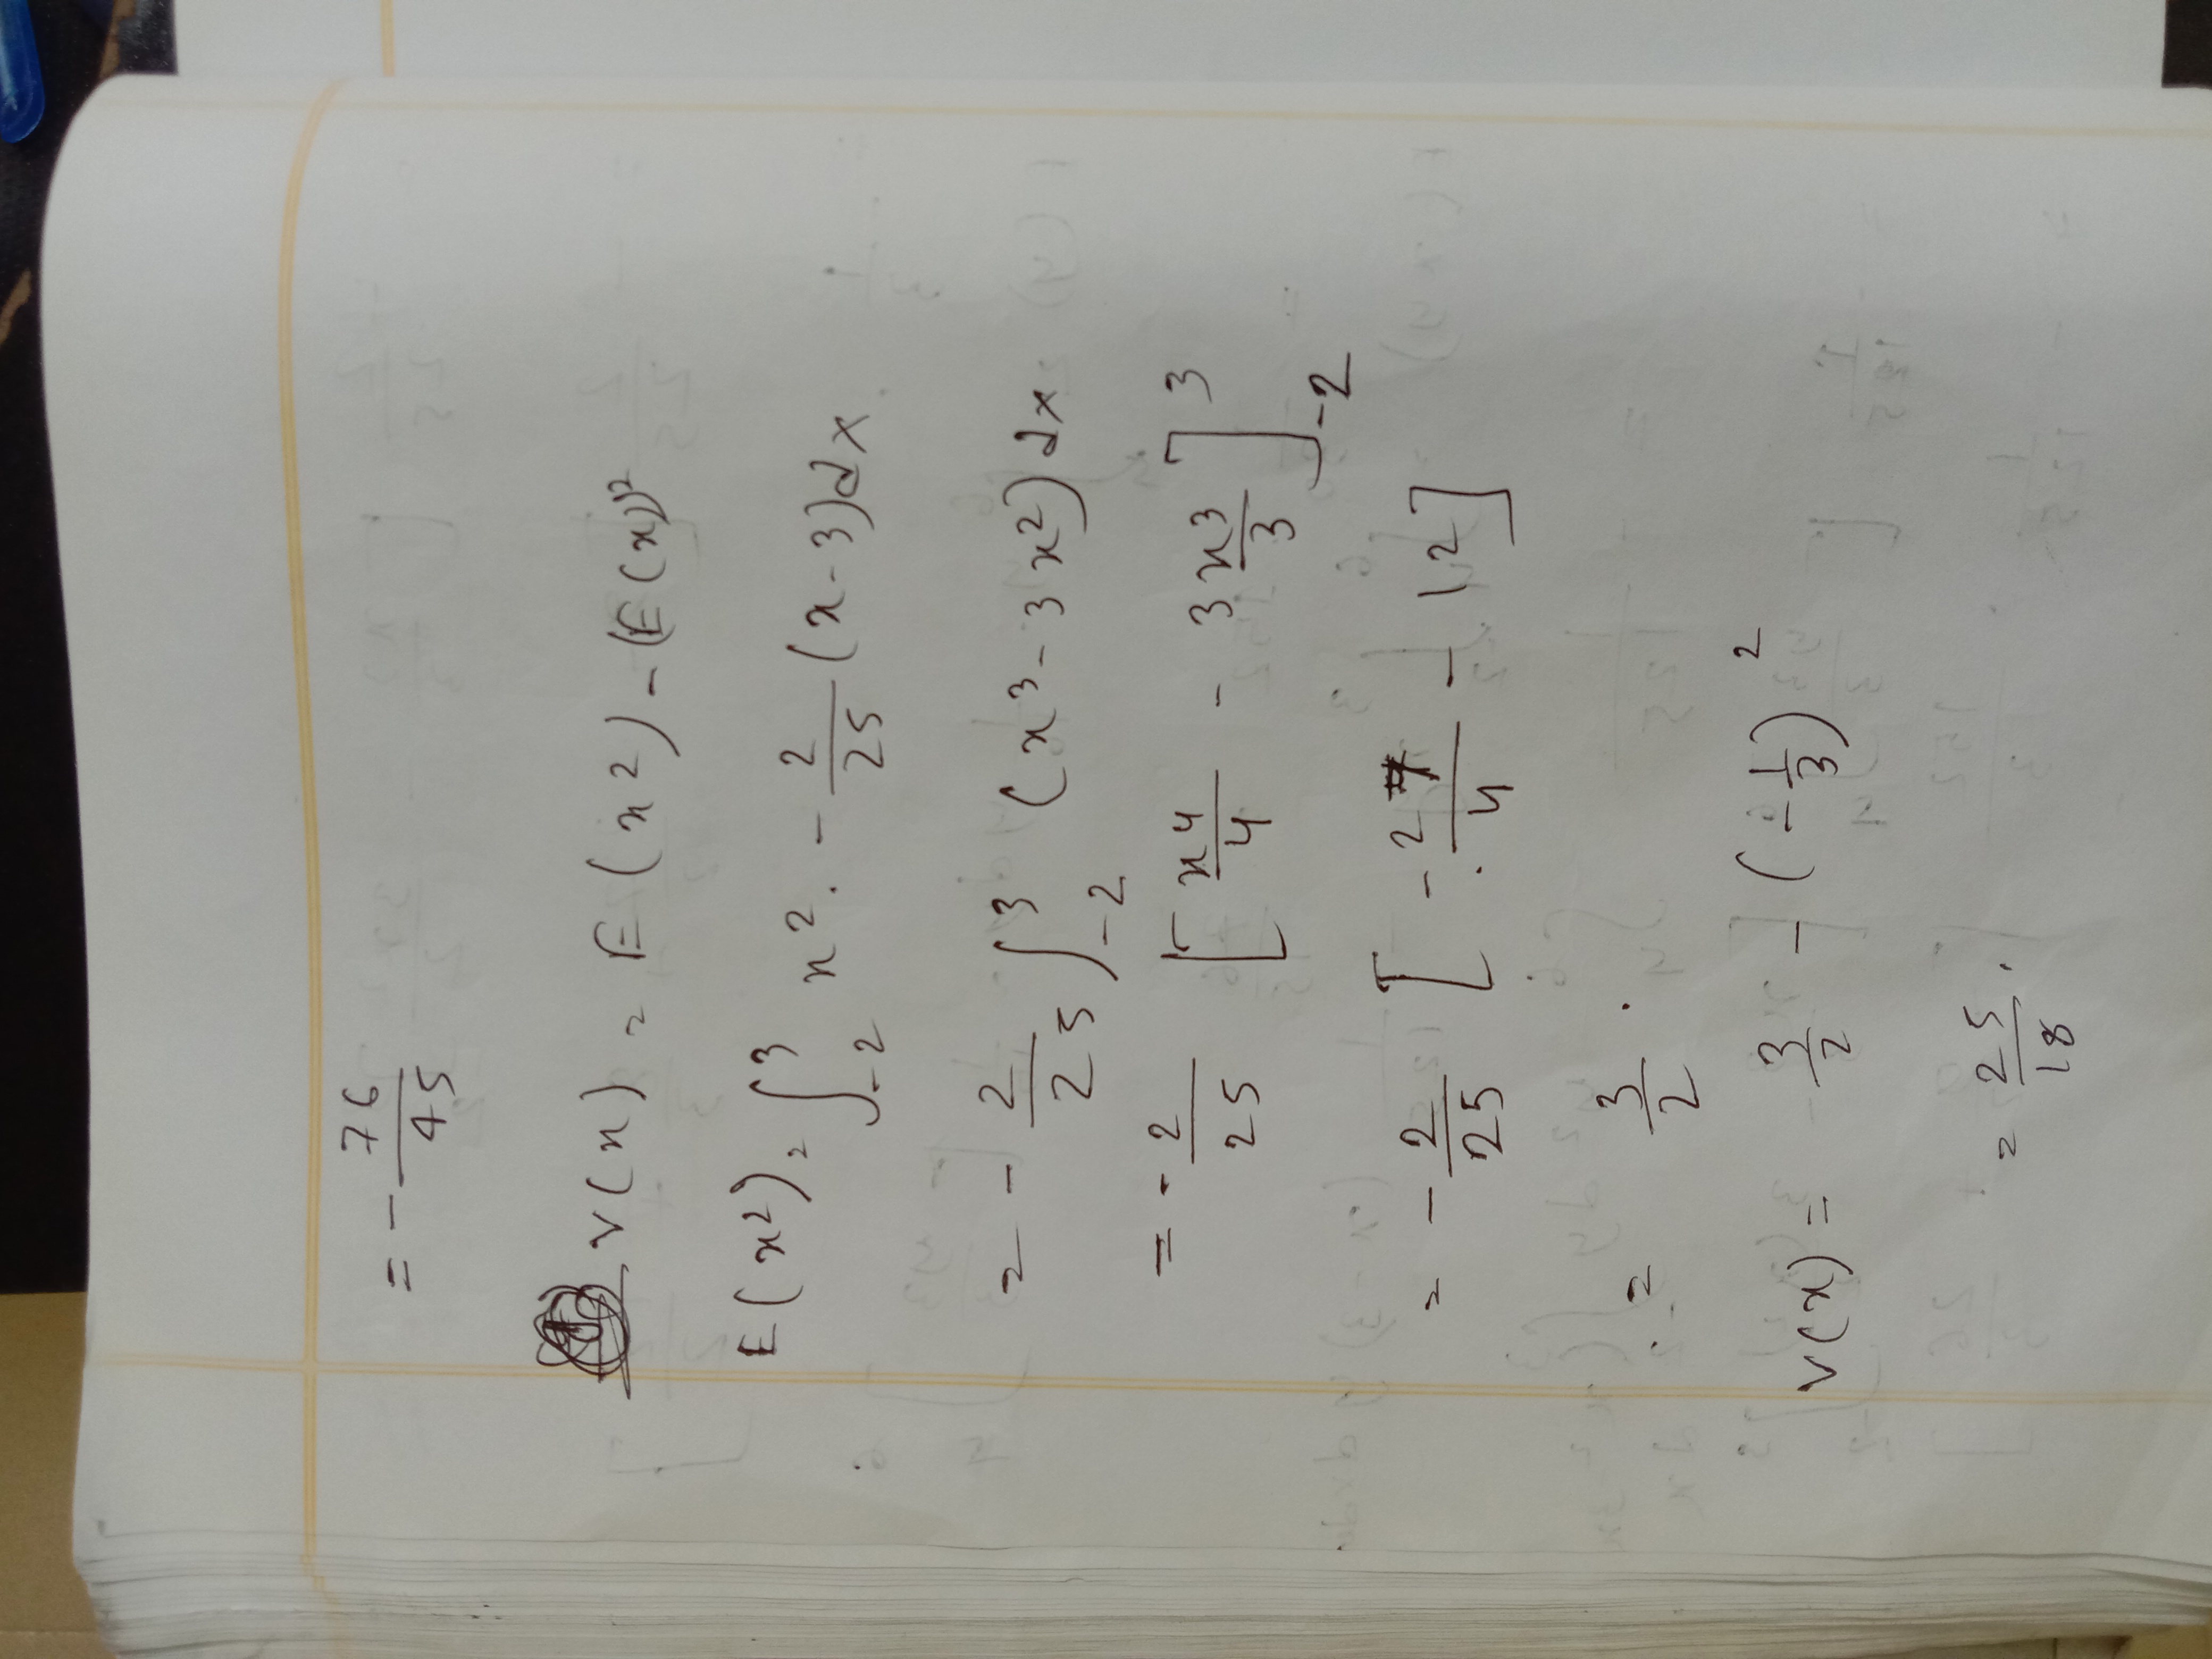 = - 76/45
V(x) = E(x²) - (E(x))²
E(x²) = ∫₋₂³ x² · - 2/25 (x-3)dx
= - 2/25 ∫₋₂³ (x³ - 3x²)dx
= - 2/25 [x⁴/4 - 3 x³/3]₋₂³
= - 2/25 [ - 27/4 - 12]
= 3/2 .
V(x) = 3/2 - (-1/3)²
= 25/18 .